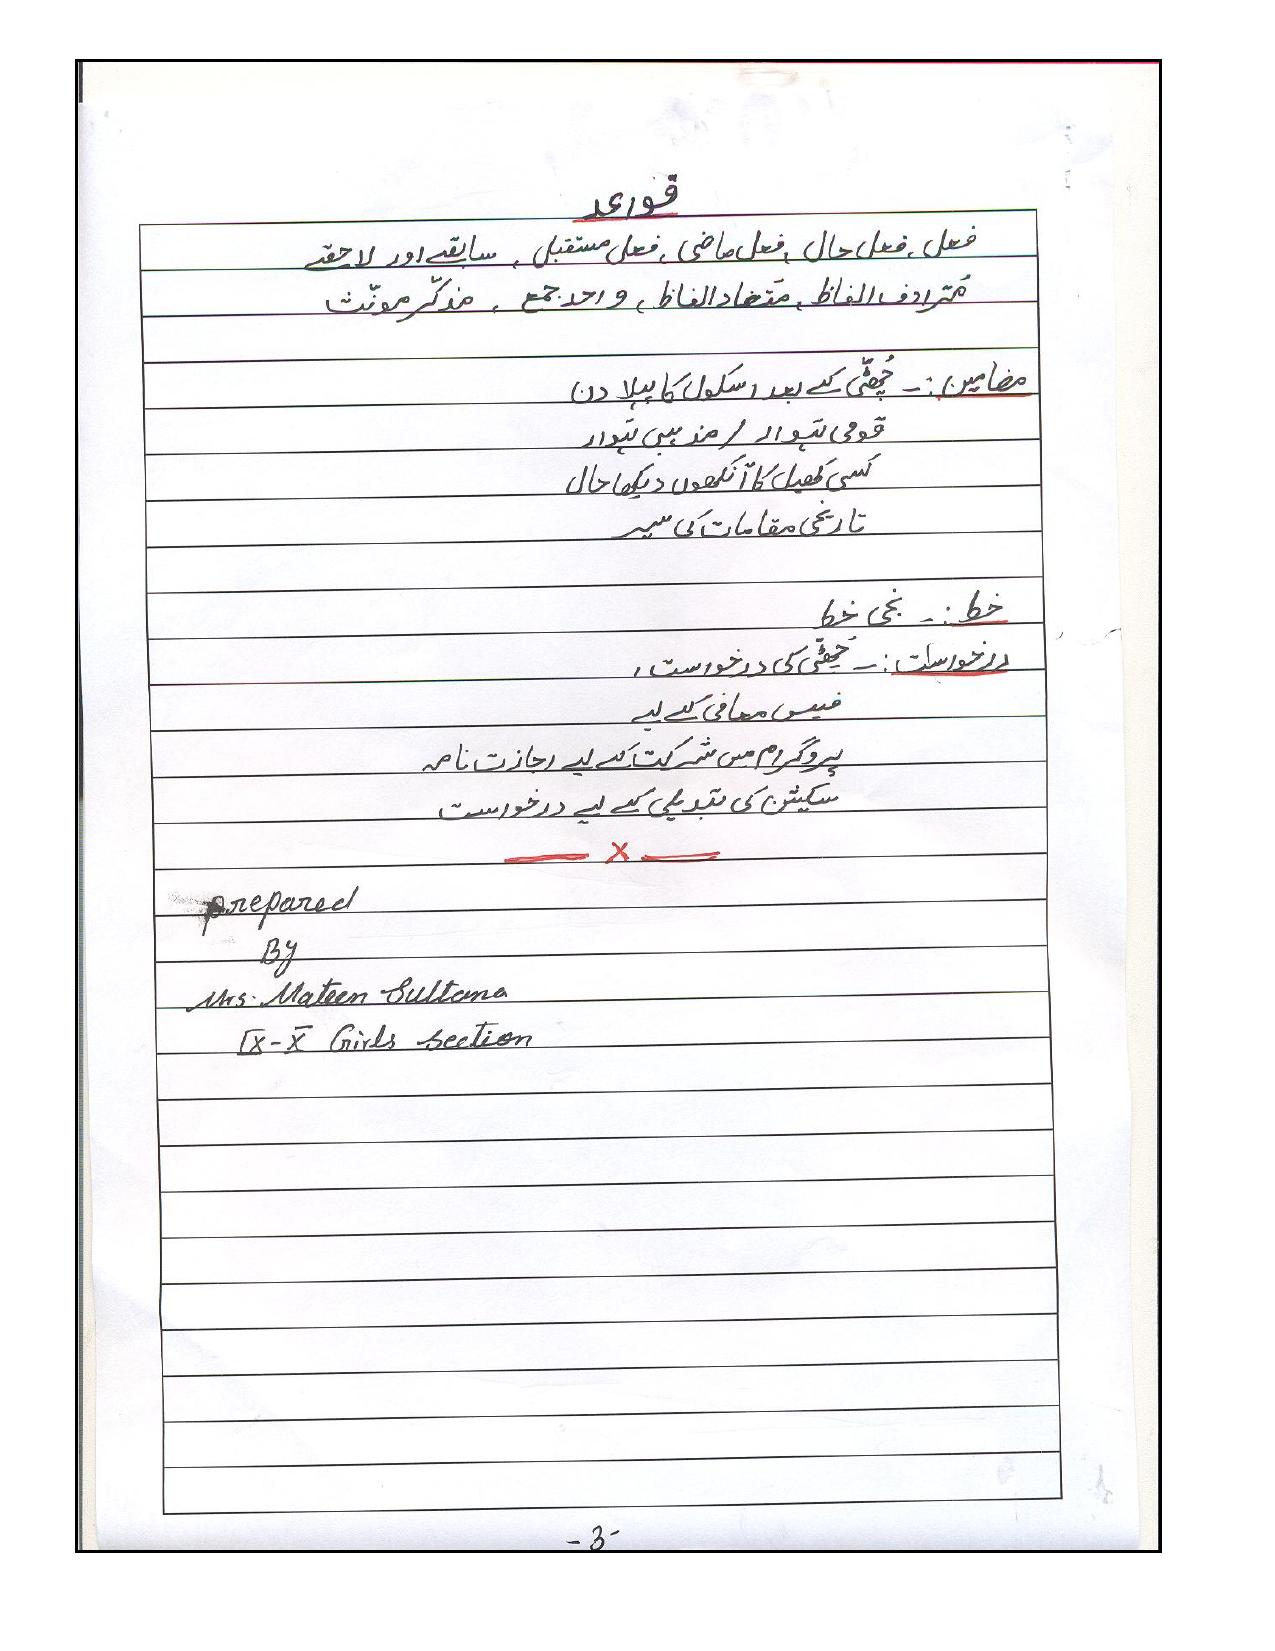 قواعد
فعل، فعل حال، فعل ماضی، فعل مستقبل، سابقے اور لاحقے
مُترادف الفاظ، مَتضاد الفاظ، واحد جمع، مذکّر مونّث
مضامین :۔ چُھٹّی کے بعد اسکول کا پہلا دن
قومی تہوار / مذہبی تہوار
کسی کھیل کا آنکھوں دیکھا حال
تاریخی مقامات کی سیر
خط :۔ نجی خط
درخواست :۔ چُھٹّی کی درخواست،
فیس معافی کے لیے
پروگرام میں شرکت کے لیے اجازت نامہ
سکیشن کی تبدیلی کے لیے درخواست
— X —
prepared
By
Mrs. Mateen Sultana
IX - X Girls Section
-3-